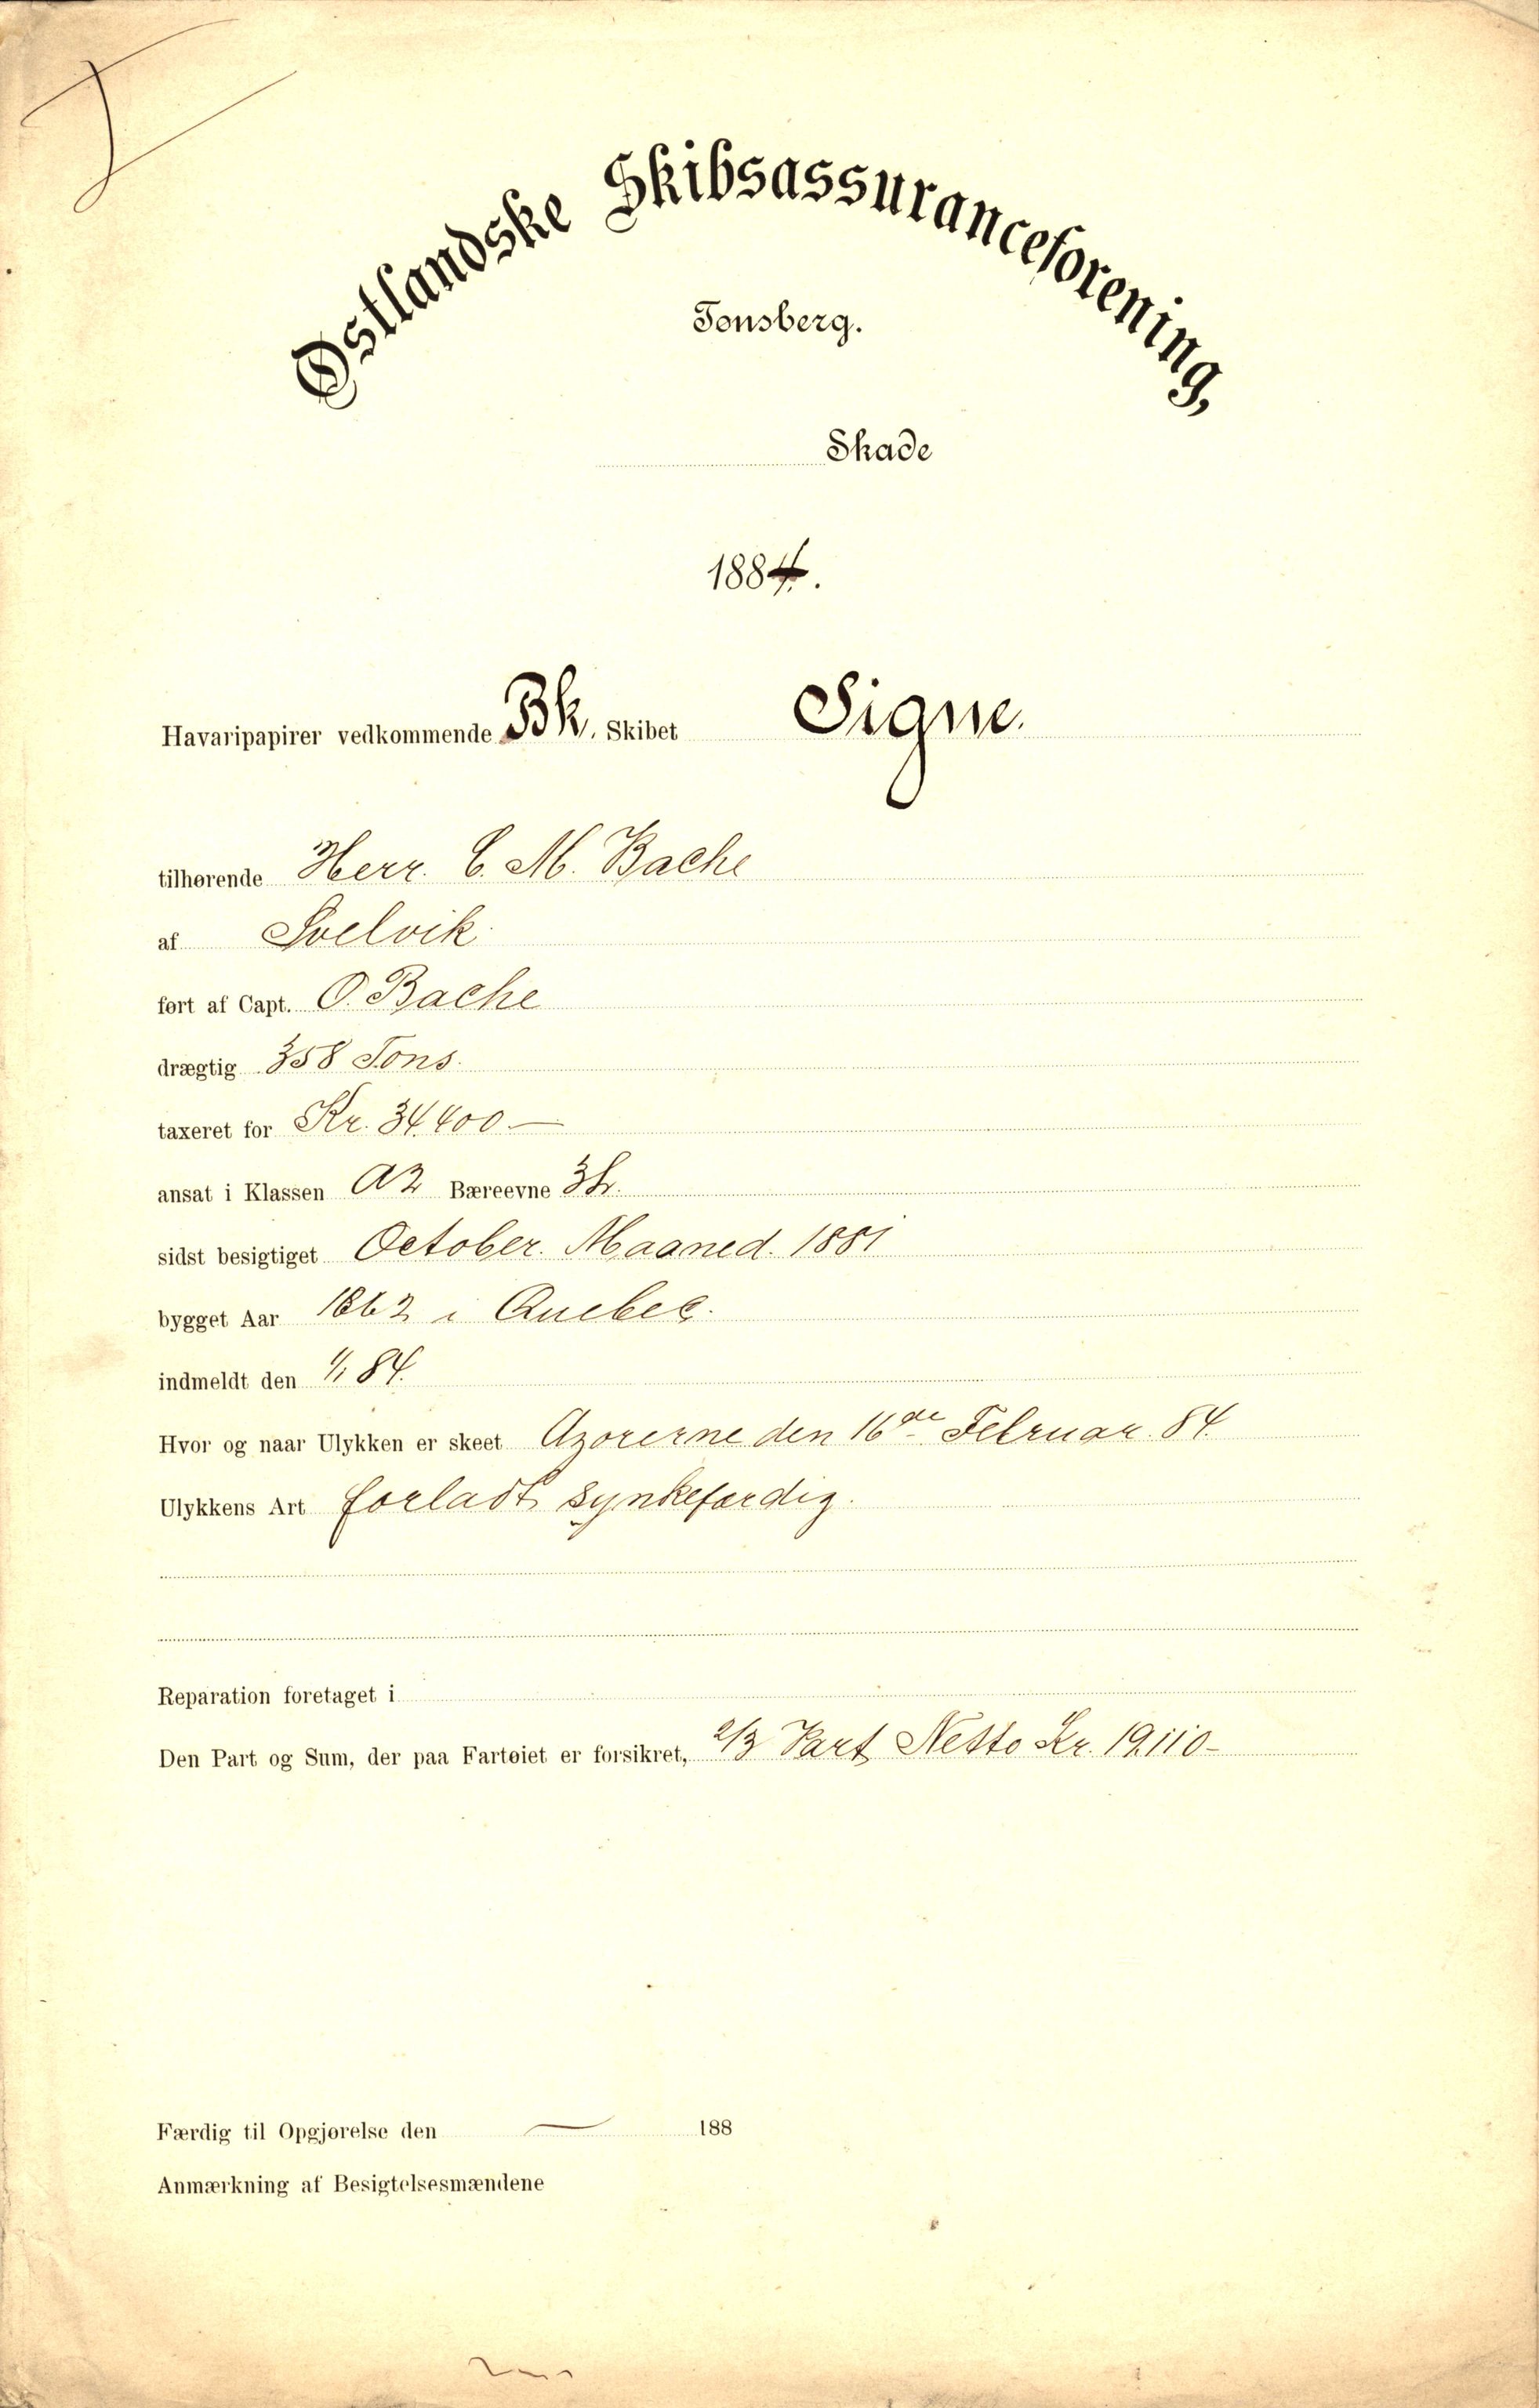 Østlandske Skibsassuranceforening,
Tønsberg.
Skade
1884.
Havaripapirer vedkommende Bk. Skibet Signe.
tilhørende Herr. C. M. Bache
af Svelvik
ført af Capt. O. Bache
drægtig 358 Tons.
taxeret for Kr. 34,400 —
ansat i Klassen A2 Bæreevne
sidst besigtiget October. Maaned. 1881
bygget Aar 1862 i Quebec.
indmeldt den 1/1 84.
Hvor og naar Ulykken er skeet Azorerne den 16de Februar. 84.
Ulykkens Art forladt synkefærdig.
Reparation foretaget i
Den Part og Sum, der paa Fartøiet er forsikret, 2/3 Part Netto Kr. 19,110 -
Færdig til Opgjørelse den — 188
Anmærkning af Besigtelsesmændene